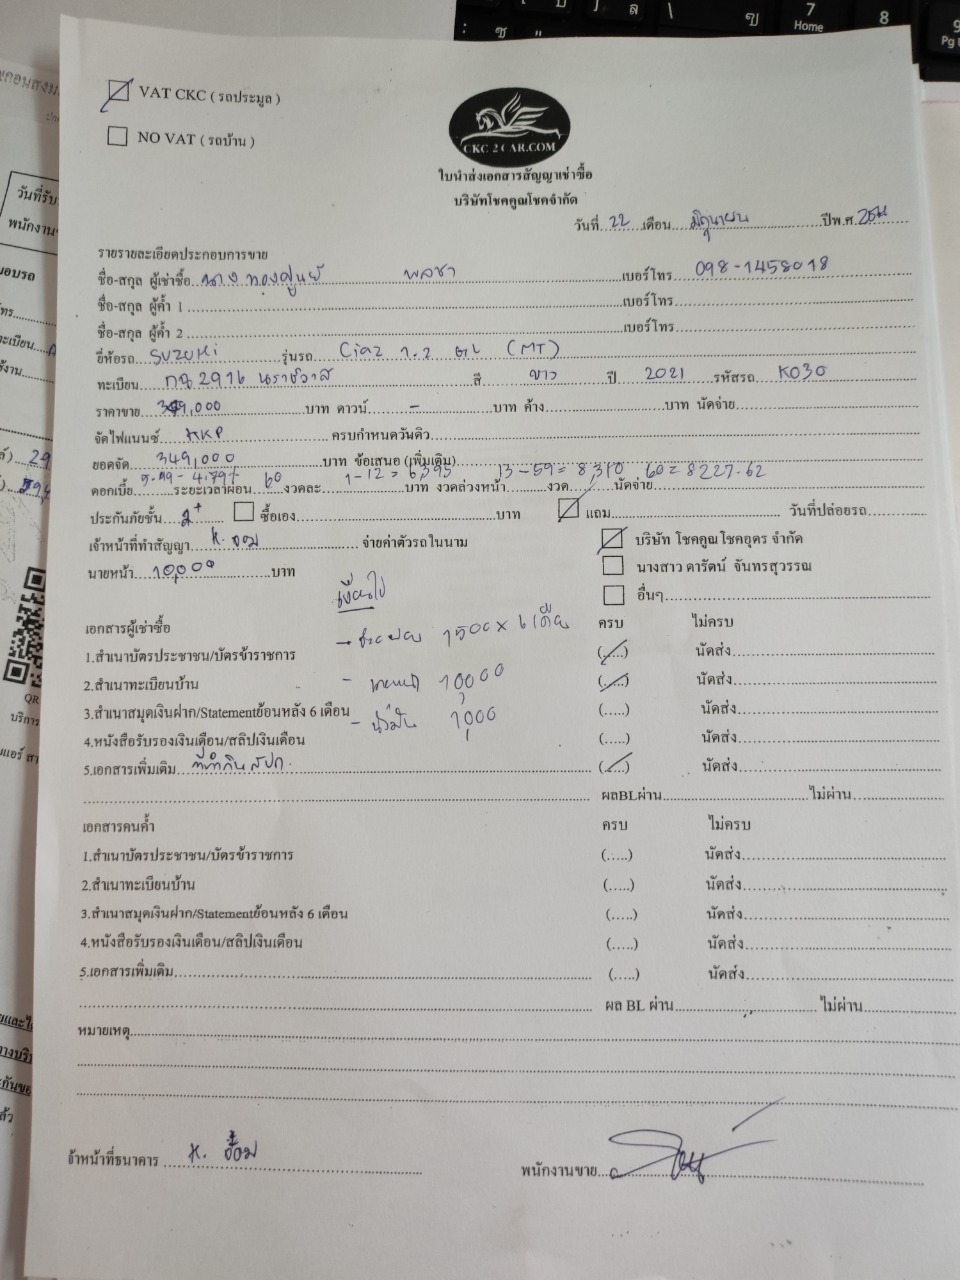 VAT CKC ( รถประมูล )
NO VAT ( รถบ้าน )
CKC 2 CAR.COM
ใบนำส่งเอกสารสัญญาเช่าซื้อ
บริษัทโชคคูณโชคจำกัด
วันที่ 22 เดือน มิถุนายน ปีพ.ศ.
รายรายละเอียดประกอบการขาย
ชื่อ-สกุล ผู้เช่าซื้อ นาง ทองศูนย์ พลชา เบอร์โทร 098-1458018
ชื่อ-สกุล ผู้ค้ำ 1 เบอร์โทร
ชื่อ-สกุล ผู้ค้ำ 2 เบอร์โทร
ยี่ห้อรถ SUZUKI รุ่นรถ Ciaz 1.2 GL (MT)
ทะเบียน 2916 นราธิวาส สี ขาว ปี 2021 รหัสรถ K030
ราคาขาย 349,000 บาท ดาวน์ - บาท ค้าง บาท นัดจ่าย
จัดไฟแนนซ์ KKP ครบกำหนดวันคิว
ยอดจัด 349,000 บาท ข้อเสนอ (เพิ่มเติม)
1-12 = 6,395 13-59 = 8,310 60 = 8227.62
ดอกเบี้ย ระยะเวลาผ่อน 60 งวดละ บาท งวดล่วงหน้า งวด นัดจ่าย
ประกันภัยชั้น 2+ ซื้อเอง บาท แถม วันที่ปล่อยรถ
เจ้าหน้าที่ทำสัญญา K. จ่ายค่าตัวรถในนาม บริษัท โชคคูณโชคอุดร จำกัด
นายหน้า 10,000 บาท นางสาว ดารัตน์ จันทรสุวรรณ
เงื่อนไข
อื่นๆ
เอกสารผู้เช่าซื้อ ครบ ไม่ครบ
→ ช่วยผ่อน 1500 x 6 เดือน
1.สำเนาบัตรประชาชน/บัตรข้าราชการ (.....) นัดส่ง
- นายหน้า 10,000
2.สำเนาทะเบียนบ้าน (.....) นัดส่ง
3.สำเนาสมุดเงินฝาก/Statementย้อนหลัง 6 เดือน (.....) นัดส่ง
- น้ำมัน 1,000
4.หนังสือรับรองเงินเดือน/สลิปเงินเดือน (.....) นัดส่ง
5.เอกสารเพิ่มเติม ที่ทำกิน สปก. (.....) นัดส่ง
ผลBLผ่าน ไม่ผ่าน
เอกสารคนค้ำ ครบ ไม่ครบ
1.สำเนาบัตรประชาชน/บัตรข้าราชการ (.....) นัดส่ง
2.สำเนาทะเบียนบ้าน (.....) นัดส่ง
3.สำเนาสมุดเงินฝาก/Statementย้อนหลัง 6 เดือน (.....) นัดส่ง
4.หนังสือรับรองเงินเดือน/สลิปเงินเดือน (.....) นัดส่ง
5.เอกสารเพิ่มเติม (.....) นัดส่ง
ผล BL ผ่าน ไม่ผ่าน
หมายเหตุ
จ้าหน้าที่ธนาคาร K.
พนักงานขาย